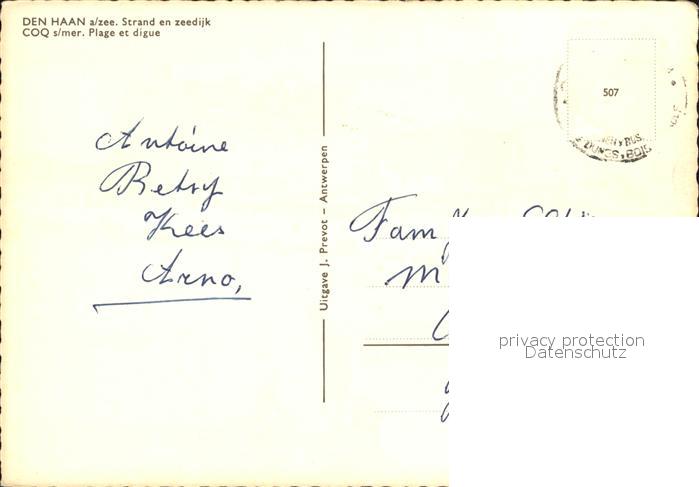 DEN HAAN a/zee. Strand en zeedijk
COQ s/mer. Plage et digue
507
DUNES BOIS
Antoine
Betsy
Kees
Arno,
Uitgave J. Prevot – Antwerpen
Fam
privacy protection
Datenschutz